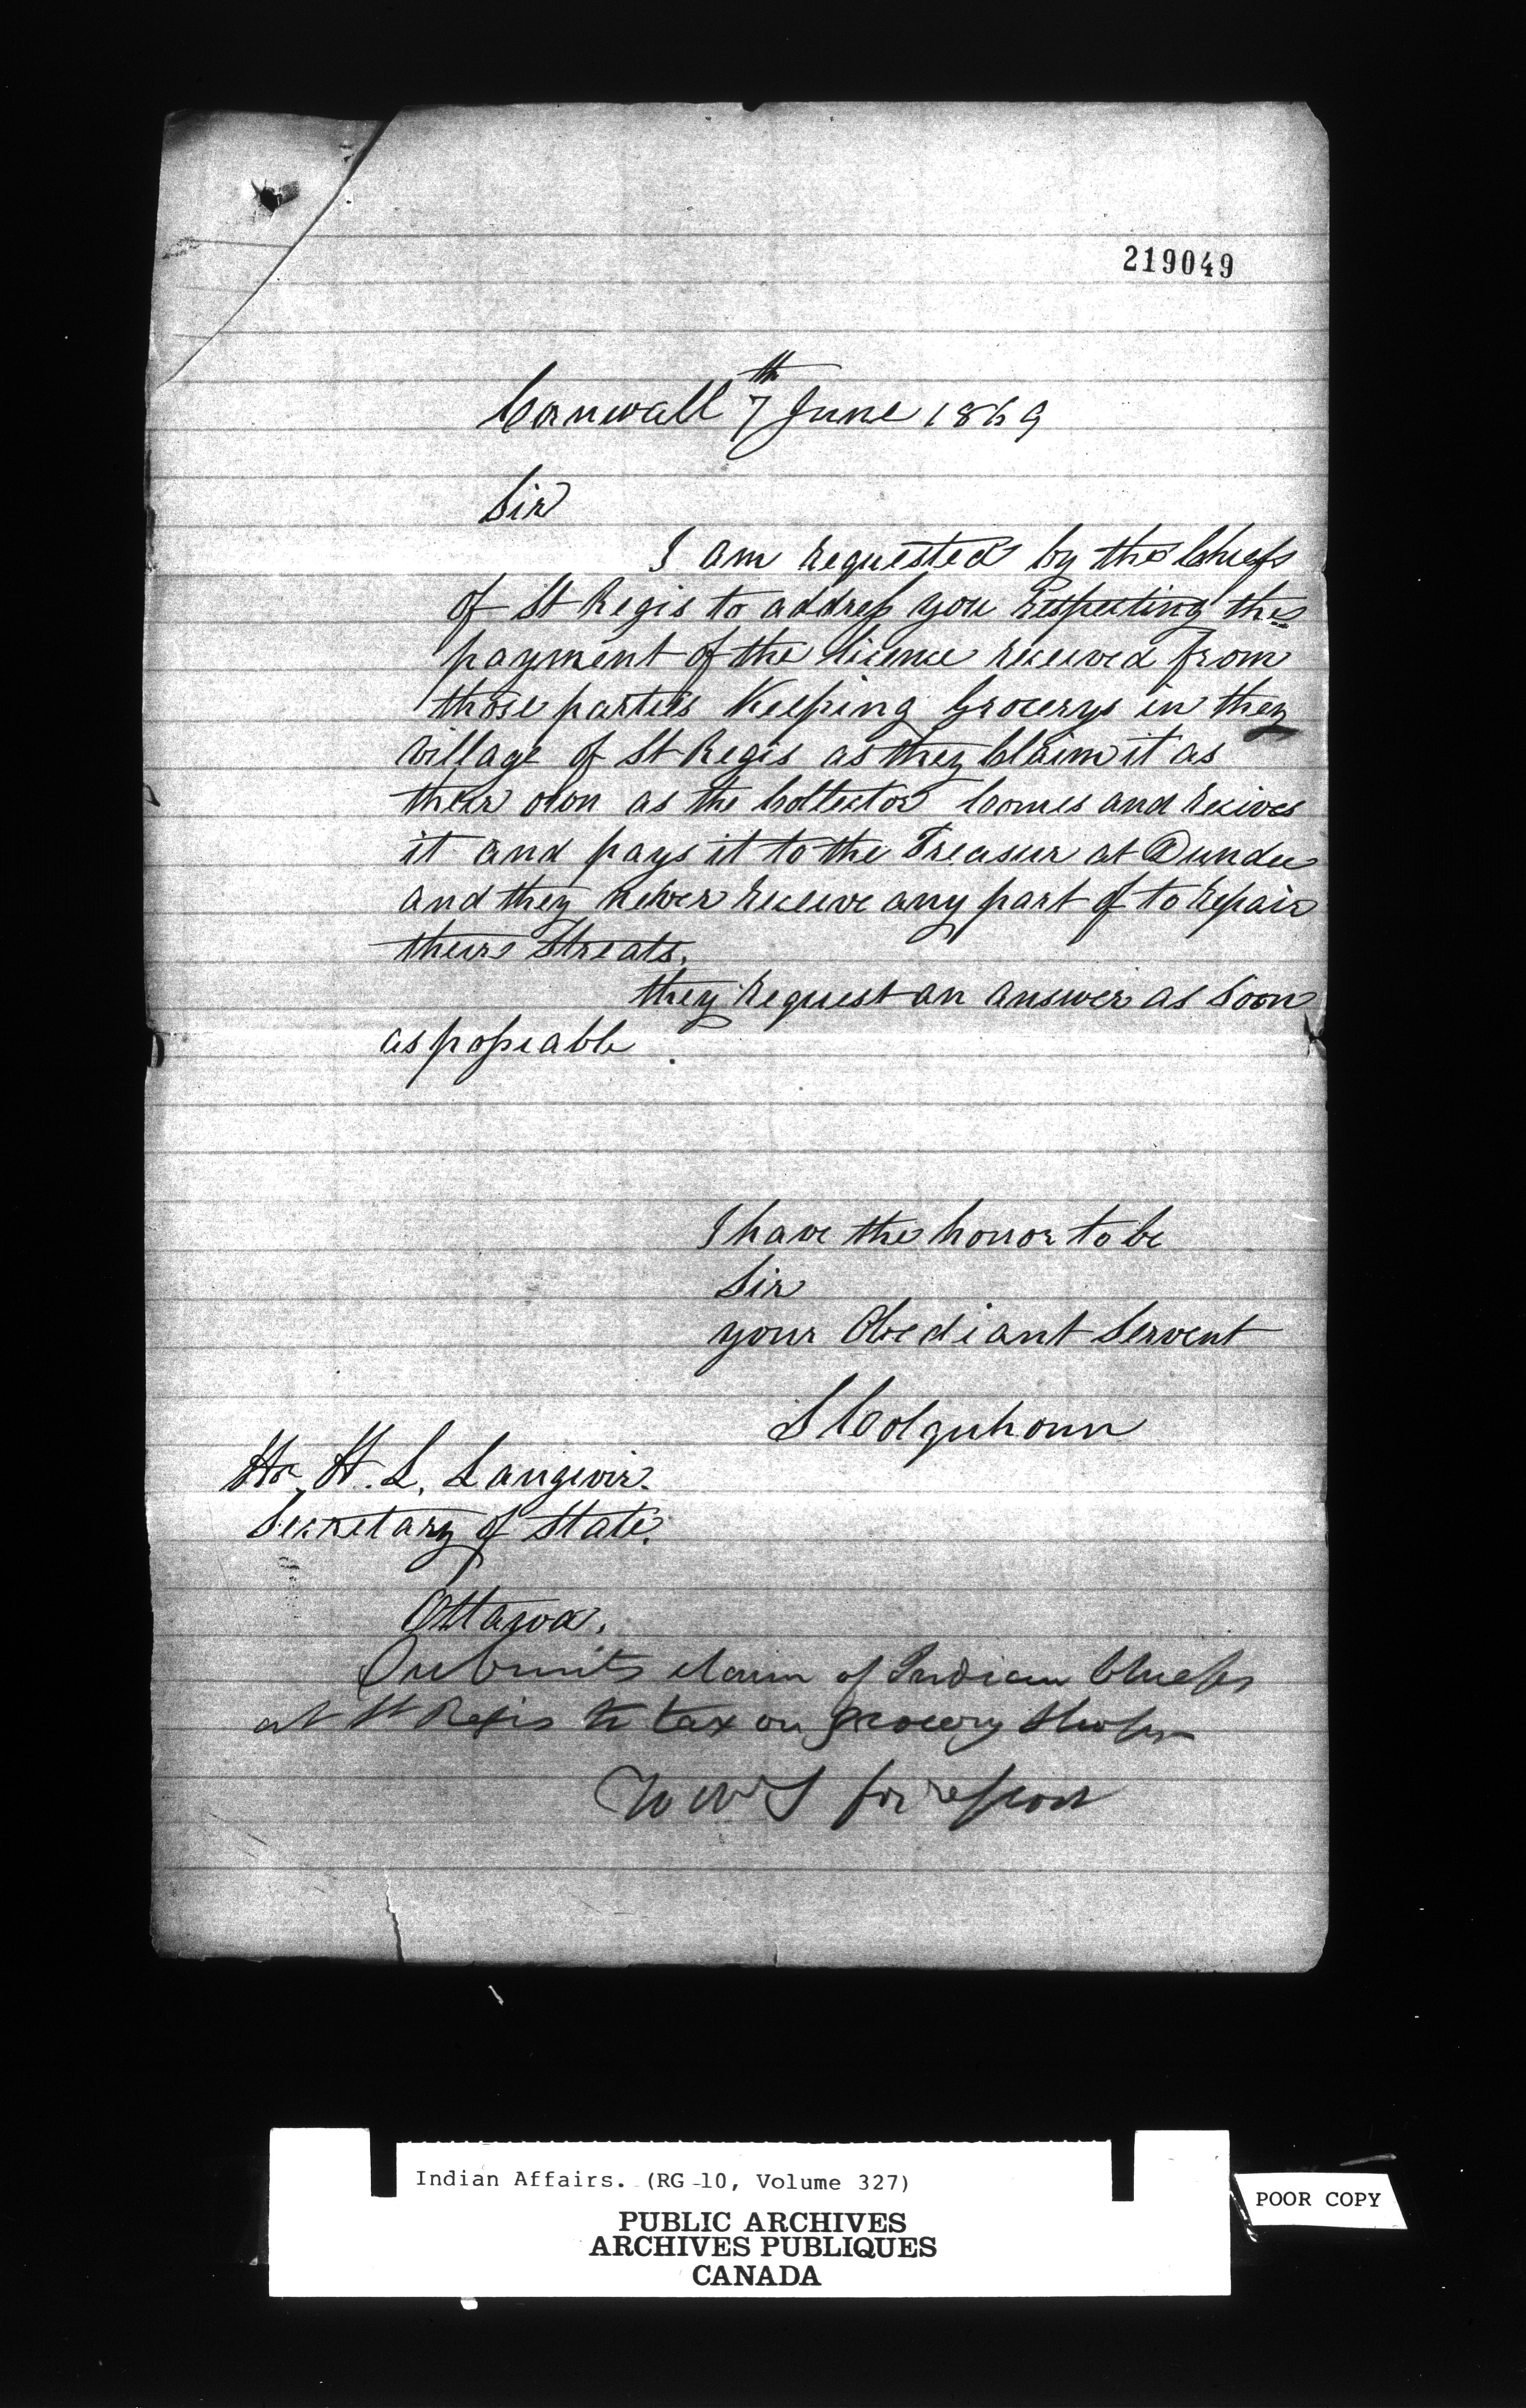 219049
Cornwall 7th June 1869
Sir
I am requested by the Chiefs
of St Regis to address you Respecting the
payment of the licence received from
those parties Keeping Grocerys in they
village of St Regis as they Claim it as
their own as the Collector Comes and recives
it and pays it to the Treasur at Dundee
and they never receive any part of to repair
theire Streats.
they request an answer as Soon
as possiable
I have the honor to be
Sir
your Obediant Servent
S Colquhoun
Hr. H. L. Langevin.
Secretary of State.
Ottawa.
Submits claim of Indian Chiefs
at St Regis to tax on grocery Shops
for report
Indian Affairs. (RG 10, Volume 327)
PUBLIC ARCHIVES
ARCHIVES PUBLIQUES
CANADA
POOR COPY